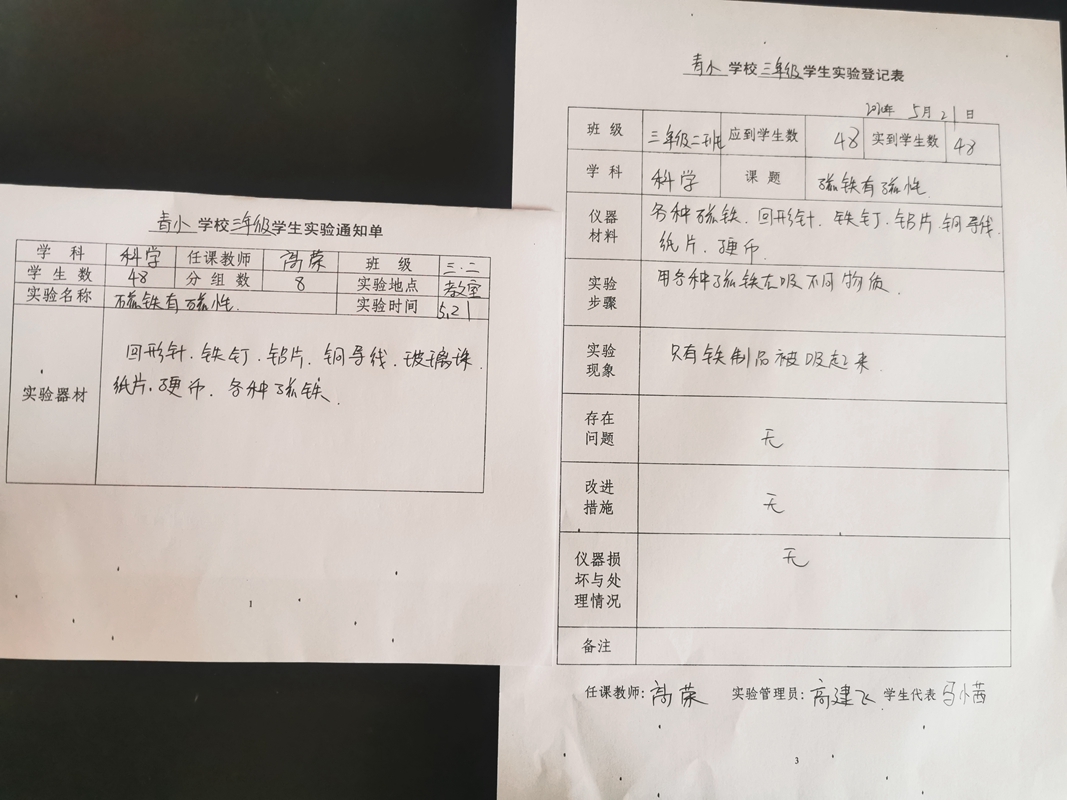 青小 学校 三年级 学生实验通知单
学 科 科学 任课教师 高荣 班 级 三·二
学 生 数 48 分 组 数 8 实验地点 教室
实验名称 磁铁有磁性. 实验时间 5.21
实验器材
回形针. 铁钉. 铝片. 铜导线. 玻璃珠.
纸片. 硬币. 各种磁铁.
1
青小 学校 三年级 学生实验登记表
2020年 5月 21日
班 级 三年级二班 应到学生数 48 实到学生数 48
学 科 科学 课 题 磁铁有磁性.
仪器
材料
各种磁铁. 回形针. 铁钉. 铝片. 铜导线.
纸片. 硬币.
实验
步骤
用各种磁铁去吸不同物质.
实验
现象
只有铁制品被吸起来.
存在
问题
无
改进
措施
无
仪器损
坏与处
理情况
无
备注
任课教师: 高荣 实验管理员: 高建飞 学生代表 马小茜
3